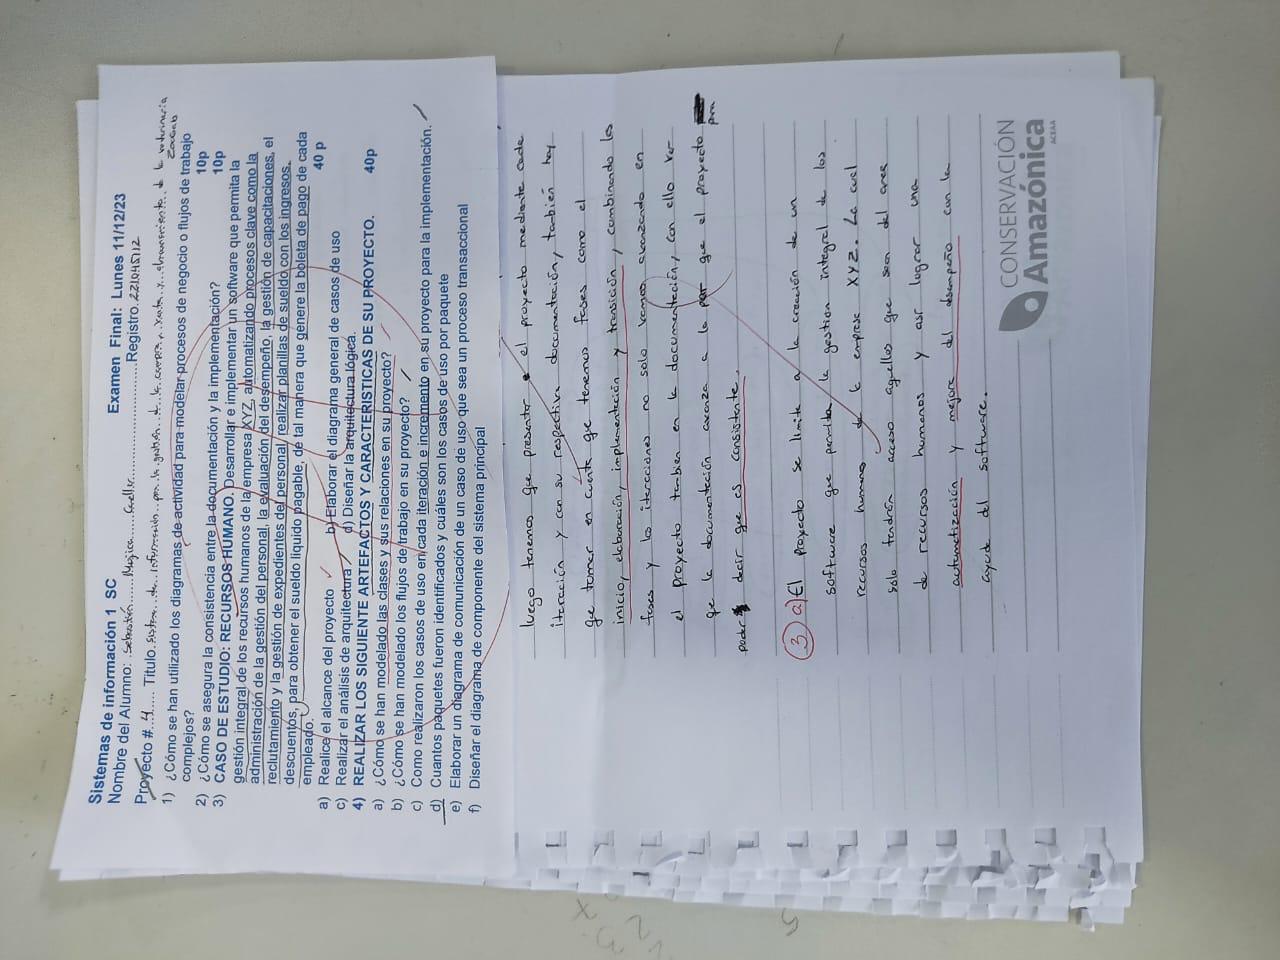 Sistemas de información 1 SC
Examen Final: Lunes 11/12/23
Nombre del Alumno: Sebastián Mojica Cuellar Registro. 221045112
Proyecto # 4 Titulo. sistema de información para la gestión de la compra, venta y de la veterinaria
1) ¿Cómo se han utilizado los diagramas de actividad para modelar procesos de negocio o flujos de trabajo
complejos? 10p
2) ¿Cómo se asegura la consistencia entre la documentación y la implementación? 10p
3) CASO DE ESTUDIO: RECURSOS HUMANO. Desarrollar e implementar un software que permita la
gestión integral de los recursos humanos de la empresa XYZ, automatizando procesos clave como la
administración de la gestión del personal, la evaluación del desempeño, la gestión de capacitaciones, el
reclutamiento y la gestión de expedientes del personal, realizar planillas de sueldo con los ingresos.
descuentos, para obtener el sueldo liquido pagable, de tal manera que genere la boleta de pago de cada
empleado. 40 p
a) Realice el alcance del proyecto b) Elaborar el diagrama general de casos de uso
c) Realizar el análisis de arquitectura d) Diseñar la arquitectura lógica.
4) REALIZAR LOS SIGUIENTE ARTEFACTOS Y CARACTERISTICAS DE SU PROYECTO. 40p
a) ¿Cómo se han modelado las clases y sus relaciones en su proyecto?
b) ¿Cómo se han modelado los flujos de trabajo en su proyecto?
c) Como realizaron los casos de uso en cada iteración e incremento en su proyecto para la implementación.
d) Cuantos paquetes fueron identificados y cuáles son los casos de uso por paquete
e) Elaborar un diagrama de comunicación de un caso de uso que sea un proceso transaccional
f) Diseñar el diagrama de componente del sistema principal
luego tenemos que presentar el proyecto mediante cada
iteración y con su respectiva documentación, también hay
que tomar en cuenta que tenemos fases como el
inicio, elaboración, implementación y transición, combinando las
fases y las iteraciones no solo vamos avanzando en
el proyecto tambien en la documentación, con ello ver
que la documentación avanza a la par que el proyecto
para
poder decir que es consistente.
3 a) El proyecto se limita a la creación de un
software que permita la gestion integral de los
recursos humanos de la empresa XYZ. La cual
solo tendrán acceso aquellos que sean del area
de recursos humanos y asi lograr una
automatización y mejora del desempeño con la
ayuda del software.
CONSERVACIÓN
Amazónica
ACEAA